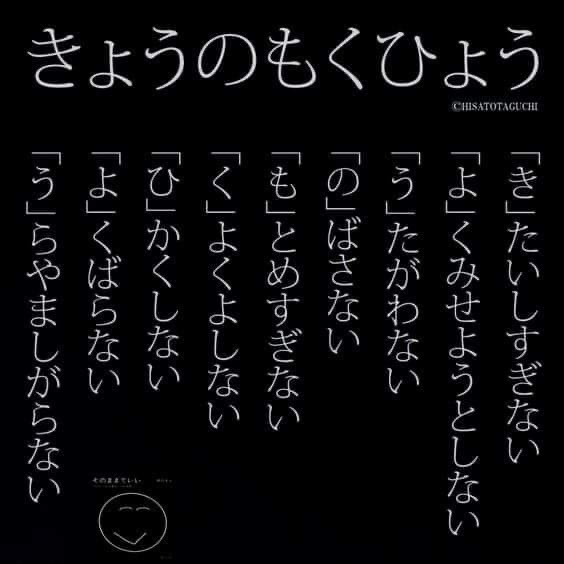 きょうのもくひょう
©HISATOTAGUCHI
「き」たいしすぎない
「よ」くみせようとしない
「う」たがわない
「の」ばさない
「も」とめすぎない
「く」よくよしない
「ひ」かくしない
「よ」くばらない
「う」らやましがらない
そのままでいい